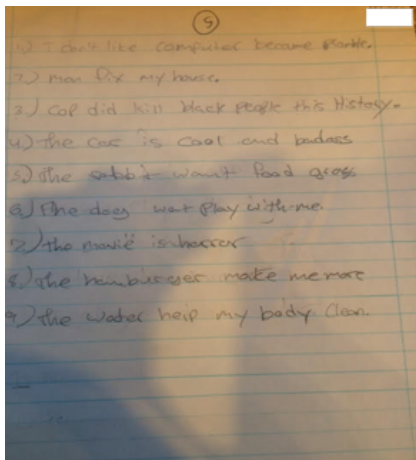 5
1.) I don't like computer become
2.) man fix my house.
3.) cop did kill black people this History.
4.) the car is cool and badass
5.) the rabbit want food grass
6.) the dog want play with me.
7.) the movie is horror
8.) the hamburger make me more
9.) the water help my body clean.